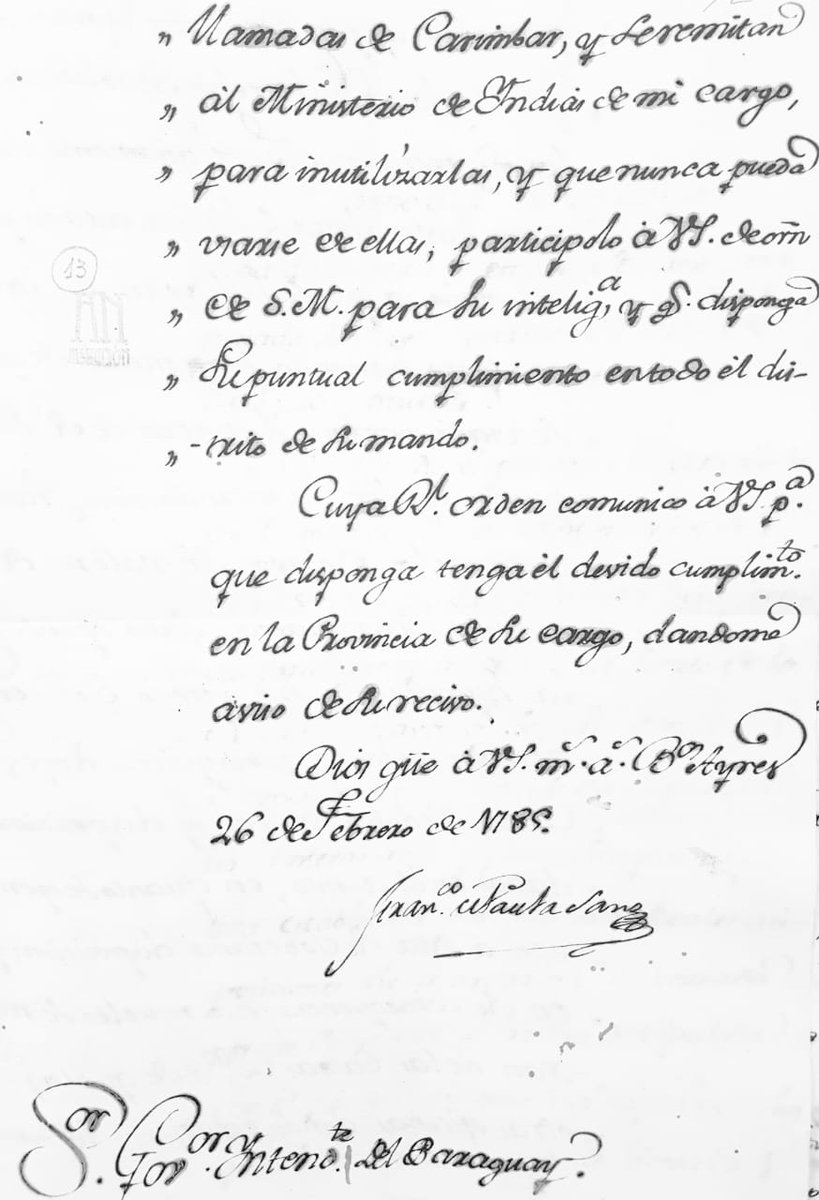 „ llamadas de Carimbar, y se remitan
„ al Ministerio de Indias de mi cargo,
„ para inutilizarlas, y que nunca pueda
„ usarse de ellas, participolo à VS. de orñ
„ de S. M. para su intelig.ª y q.e disponga
„ su puntual cumplimiento en todo el dis-
„ -trito de su mando.
Cuya R.l orden comunico à VS. p.ª
que disponga tenga el devido cumplim.to
en la Provincia de su cargo, dandome
aviso de su recivo.
Dios güe à VS. m.s a.s B.s Ayres
26 de Febrero de 1785.
Fran.co de Paula Sanz
S.or Gov.or y Intend.te del Paraguay.
13